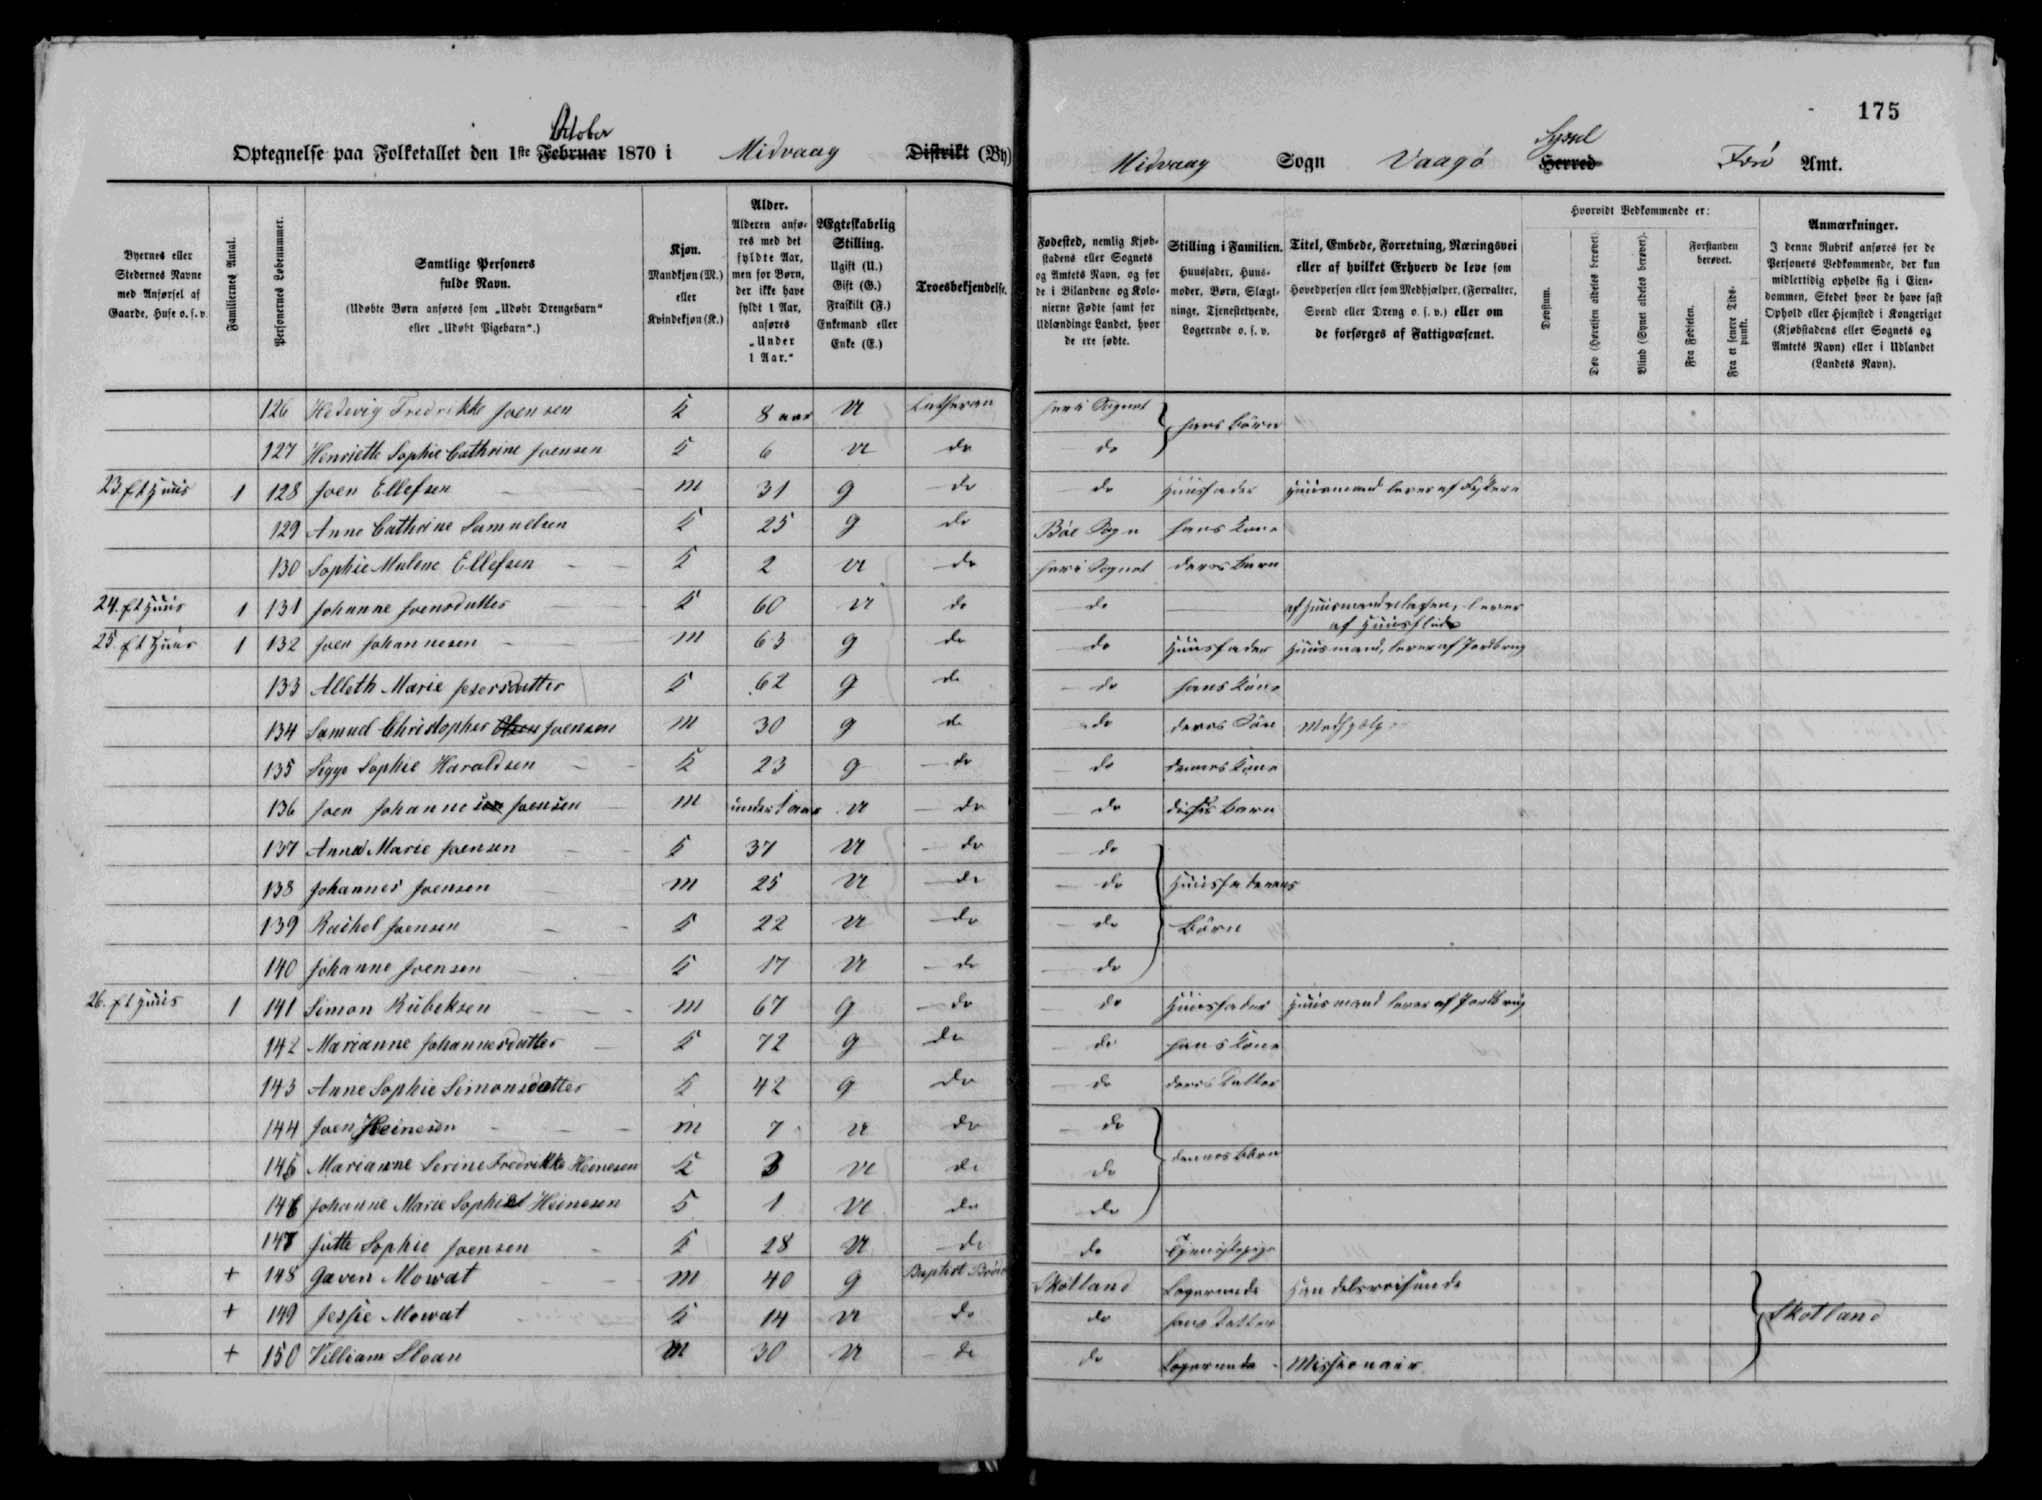 175
Optegnelse paa Folketallet den 1ste Februar October 1870 i Midvaag Distrikt (By)
Midvaag Sogn Vaagø Herred Syssel Færø Amt.
Byernes eller Stedernes Navne med Anførsel af Gaarde, Huse o. s. v.
Familiernes Antal.
Personernes Løbenummer.
Samtlige Personers fulde Navn. (Udøbte Børn anføres som „Udøbt Drengebarn“ eller „Udøbt Pigebarn“.)
Kjøn. Mandkjøn (M.) eller Kvindekjøn (K.)
Alder. Alderen anføres med det fyldte Aar, men for Børn, der ikke have fyldt 1 Aar, anføres „Under 1 Aar.“
Ægteskabelig Stilling. Ugift (U.) Gift (G.) Fraskilt (F.) Enkemand eller Enke (E.)
Troesbekjendelse.
Fødested, nemlig Kjøbstadens eller Sognets og Amtets Navn, og for de i Bilandene og Kolonierne Fødte samt for Udlændinge Landet, hvor de ere fødte.
Stilling i Familien. Huusfader, Huusmoder, Børn, Slægtninge, Tjenestetyende, Logerende o. s. v.
Titel, Embede, Forretning, Næringsvei eller af hvilket Erhverv de leve som Hovedperson eller som Medhjælper, (Forvalter, Svend eller Dreng o. s. v.) eller om de forsørges af Fattigvæsenet.
Hvorvidt Vedkommende er:
Døvstum.
Døv (Hørelsen aldeles berøvet).
Blind (Synet aldeles berøvet).
Forstanden berøvet.
Fra Fødselen.
Fra et senere Tidspunkt.
Anmærkninger. I denne Rubrik anføres for de Personers Vedkommende, der kun midlertidig opholde sig i Eiendommen, Stedet hvor de have fast Ophold eller Hjemsted i Kongeriget (Kjøbstadens eller Sognets og Amtets Navn) eller i Udlandet (Landets Navn).
126 Hedevig Fredrikke Joensen K 8 aar U Lutheran her i Sognet } hans Börn
127 Henriette Sophie Cathrine Joensen K 6 U do do
23. et Huus 1 128 Joen Ellefsen M 31 G do do Huusfader Huusmand lever af Fiskeri
129 Anne Cathrine Samuelsen K 25 G do Böe Sogn hans Kone
130 Sophie Malene Ellefsen K 2 U do her i Sognet deres Barn
24. et Huus 1 131 Johanne Joensdatter K 60 U do do af Huusmandsclassen, lever af Huusflid
25. et Huus 1 132 Joen Johannesen M 63 G do do Huusfader Huusmand, lever af Jordbrug
133 Alleth Marie K 62 G do do hans Kone
134 Samuel Christopher Joensen M 30 G do do deres Sön Medhjælp
135 Sigge Sophie Haraldsen K 23 G do do dennes Kone
136 Joen Johannesen Joensen M under 1 aar U do do disses Barn
137 Anna Marie Joensen K 37 U do do
138 Johannes Joensen M 25 U do do } Huusfaderens
139 Rachel Joensen K 22 U do do Börn
140 Johanne Joensen K 17 U do do
26. et Huus 1 141 Simon Rubeksen M 67 G do do Huusfader Huusmand lever af Jordbrug
142 Marianne Johannesdatter K 72 G do do hans Kone
143 Anne Sophie Simonsdatter K 42 G do do deres Datter
144 Joen Heinesen M 7 U do do
145 Marianne Serine Fredrikke Heinesen K 3 U do do } dennes Börn
146 Johanne Marie Heinesen K 1 U do do
147 Jutte Sophie Joensen K 28 U do do Tjenistepige
+ 148 Gaven Mowat M 40 G Baptist Skotland Logerende Handelsreisende
+ 149 Jessie Mowat K 14 U do do hans Datter } Skotland
+ 150 Villiam Sloan M 30 U do do Logerende Missionair